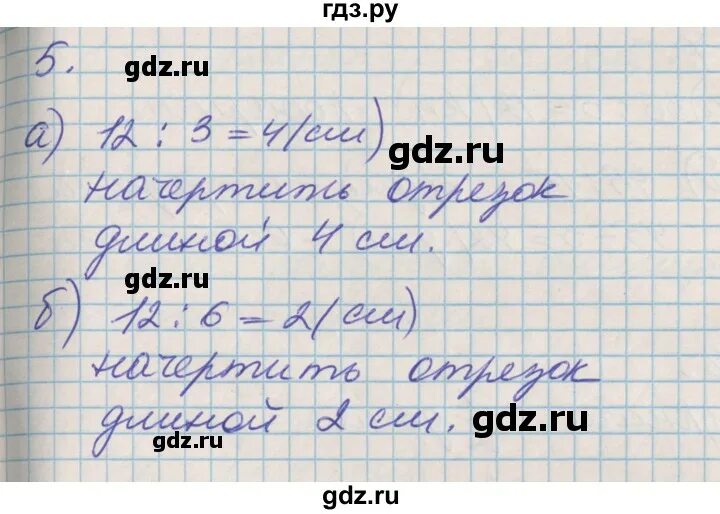 гдз.ру
5.
gdz.ru
а) 12 : 3 = 4 (см)
gdz.ru
начертить отрезок
длиной 4 см.
gdz.ru
б) 12 : 6 = 2 (см)
начертить отрезок
длиной 2 см.
gdz.ru
gdz.ru
gdz.ru